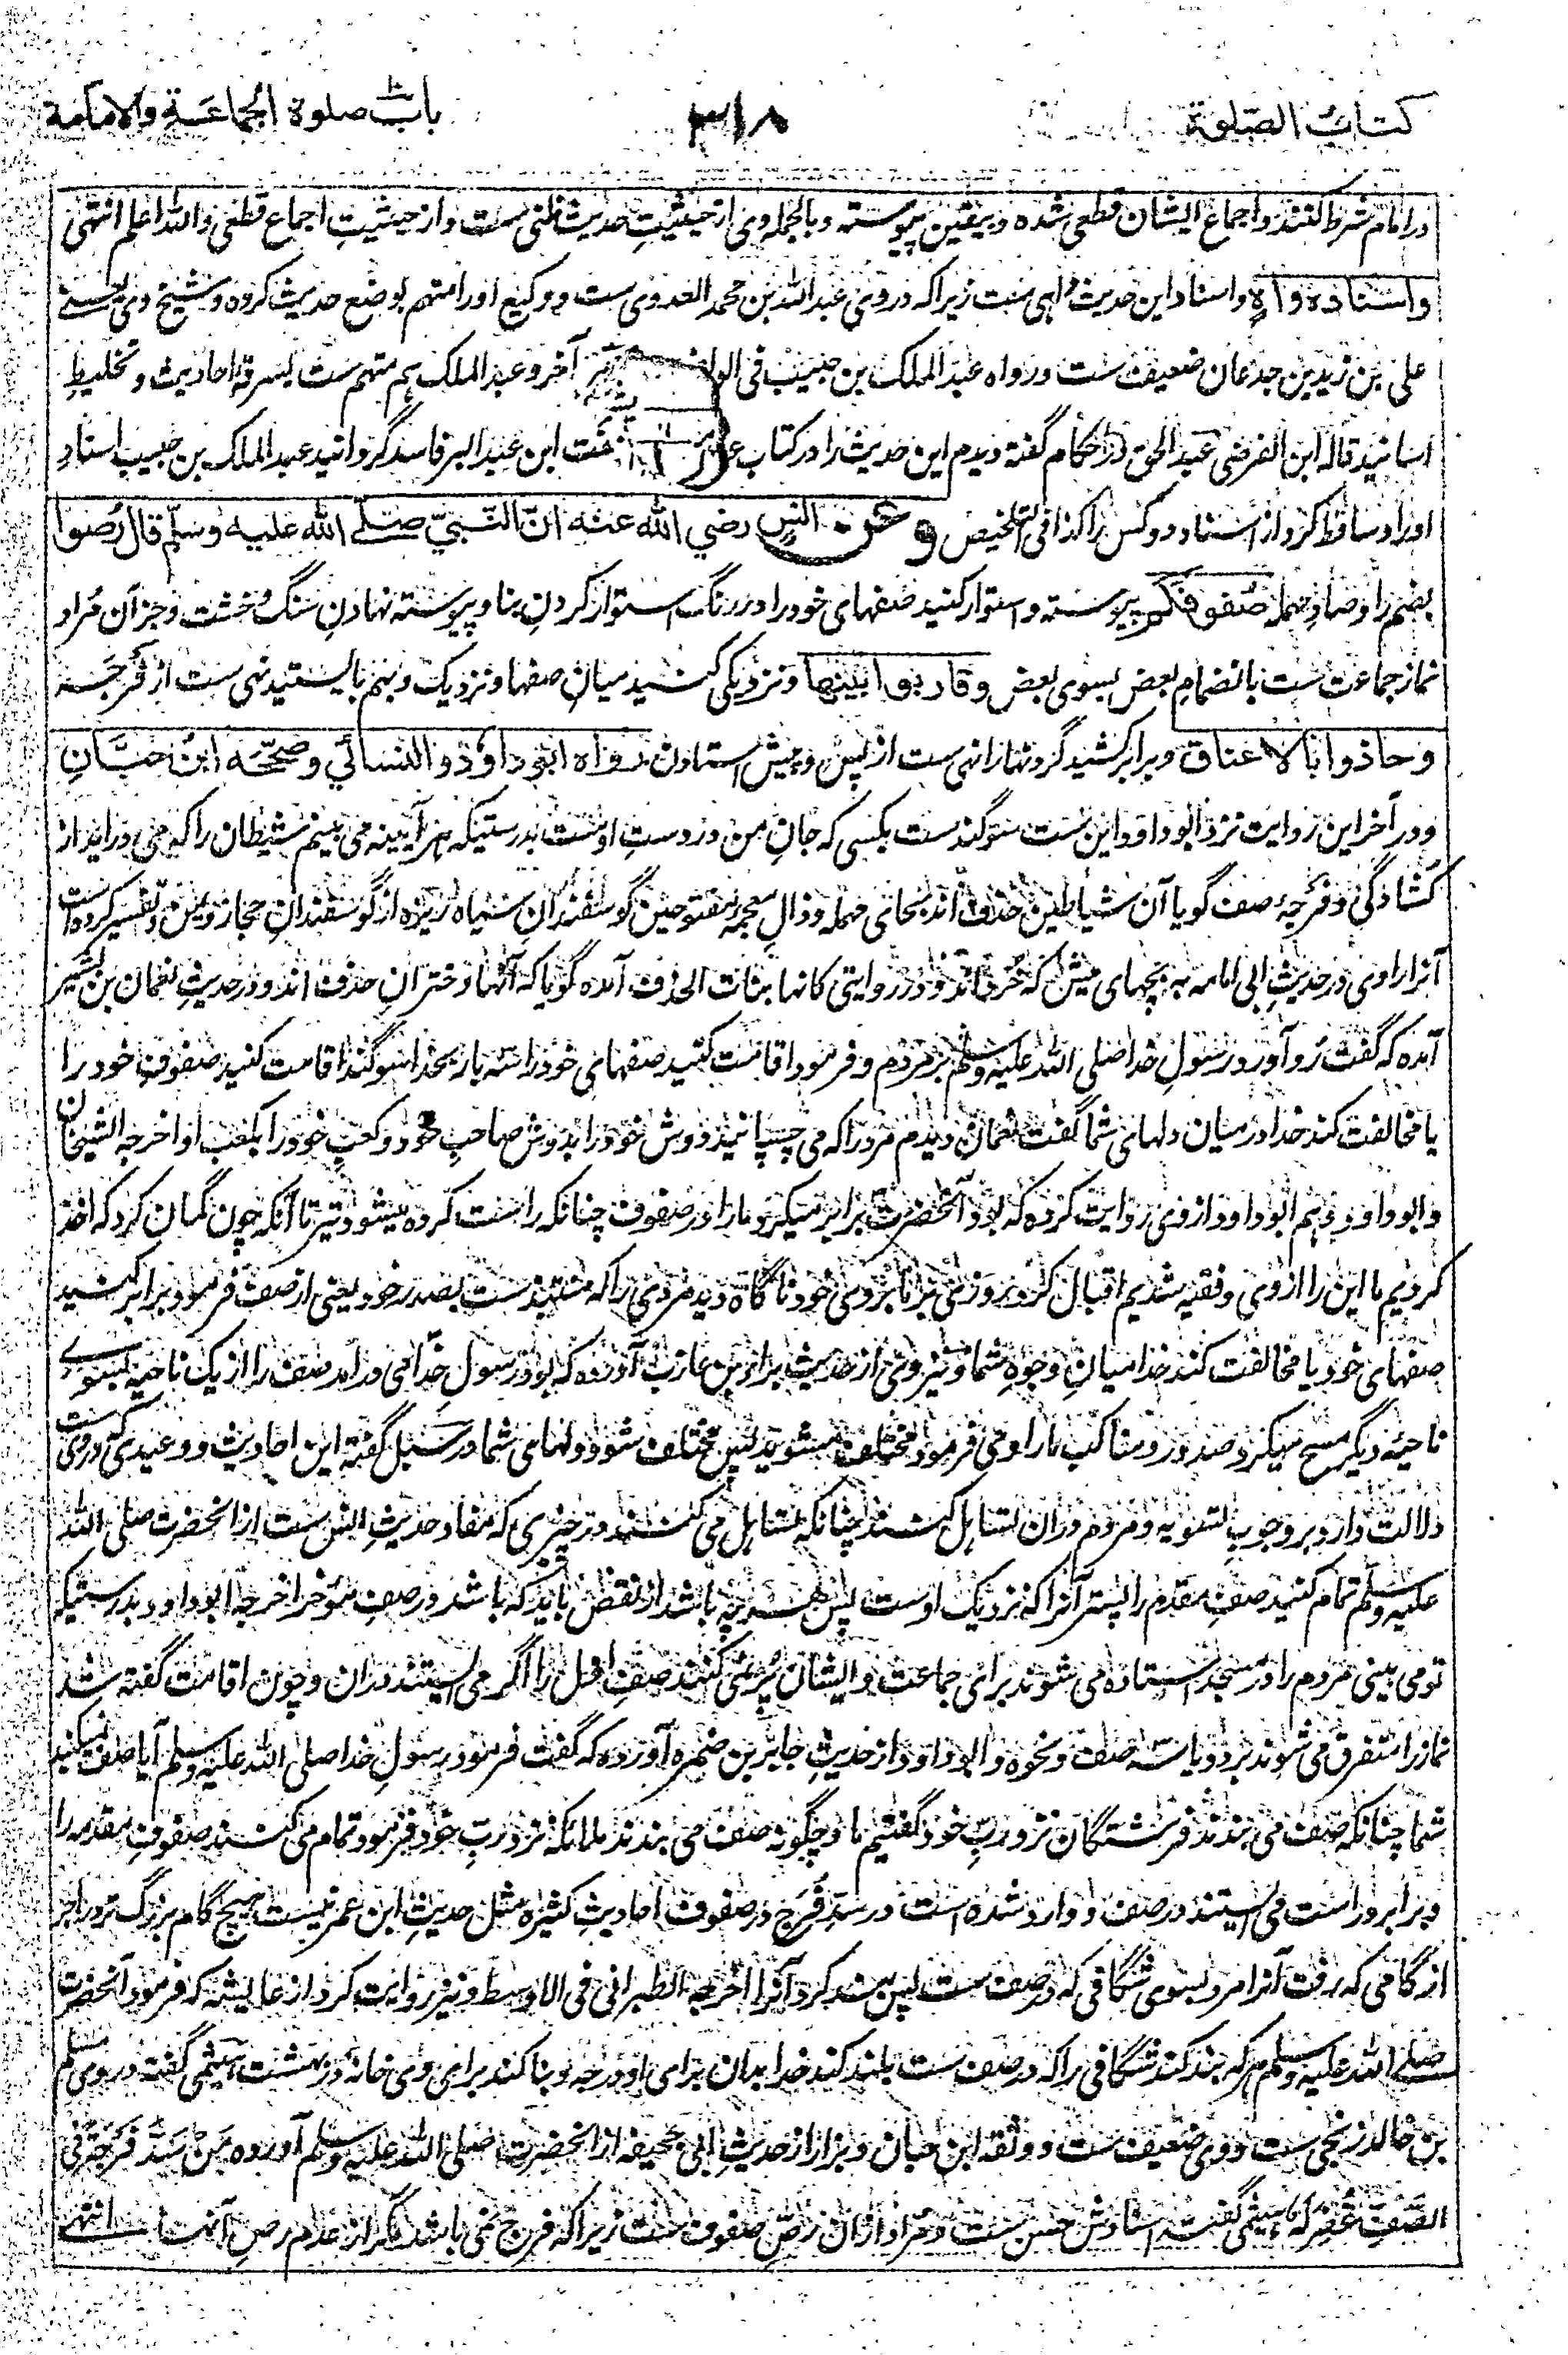 کتاب الصّلوة
۳۱۸
باب صلوة الجماعة والامامة
در امام شرط کنند و اجماع ایشان قطعی شده و بیقین پیوسته و بالجمله وی از حیثیتِ حدیث ظنی ست و از حیثیتِ اجماع قطعی والله اعلم انتهی
واسناده واهٍ و اسناد این حدیث واهی ست زیرا که در وی عبدالله بن محمد العدوی ست و وکیع او را متهم بوضع حدیث کرده و شیخ وی یعنے
علی بن زید بن جدعان ضعیف ست و رواه عبد الملک بن حبیب فی آخر و عبدالملک هم متهم ست بسرقهٔ احادیث و تخلیطِ
اسانید قاله ابن الفرضی عبد الحق در احکام گفته دیدم این حدیث را در کتاب ابن عبد البر فاسد گردانید عبد الملک بن حبیب اسنادِ
او را و ساقط کرد از اسناد دو کس را کذا فی التلخیص وعن انس رضي الله عنه انّ النّبيّ صلّے الله عليه وسلّم قال رُصوا
بضم را و صاد مهمله صفوفكم پیوسته و استوار کنید صفهای خود را در رنگ استوار کردنِ بنا و پیوسته نهادنِ سنگ و خشت و جز آن مُراد
نماز جماعت ست بانضمامِ بعض بسوی بعض وقاربوا بينها و نزدیکی کنید میانِ صفها و نزدیک و بهم بایستید نهی ست از فُرجَه
وحاذوا بالاعناق و برابر کنید گردنها را نهی ست از پس و پیش استادن رواه ابو داؤد والنسائي وصحّحه ابن حبَّانٍ
و در آخر این روایت نزد ابو داود این ست سوگند ست بکسی که جانِ من در دستِ اوست بدرستیکه هر آیینه می بینم شیطان را که می در آید از
کشادگی و فُرجهٔ صف گویا آن شیاطین حذف اند بحای مهمله و ذالِ معجمه مفتوحتین گوسفندانِ سیاه ریزه از گوسفندانِ حجاز و یمن و تفسیر کرده است
آنرا راوی در حدیثِ ابی امامه به بچهای میش که خُرد اند و در روایتی کانها بنات الحذف آمده گویا که آنها دخترانِ حذف اند و در حدیثِ نعمان بن بشیر
آمده که گفت رو آورد رسولِ خدا صلی الله علیه وسلم بر مردم و فرمود اقامت کنید صفهای خود را سه بار بخدا سوگند اقامت کنید صفوفِ خود را
یا مخالفت کند خدا در میان دلهای شما گفت نعمان دیدم مرد را که می چسپانید دوش خود را بدوش صاحبِ خود و کعبِ خود را بکعب او اخرجه الشیخان
و ابو داود و هم ابو داود از وی روایت کرده که بود آنحضرت برابر میکرد ما را در صفوف چنانکه راست کرده میشود تیر تا آنکه چون گمان کرد که اخذ
کردیم ما این را از وی و فقیه شدیم اقبال کرد روزی بر ما بروی خود ناگاه دید مردی را که منتبذ ست بصدر خود یعنی از صف فرمود برابر کنید
صفهای خود یا مخالفت کند خدا میانِ وجوهِ شما و نیز وی از حدیثِ براء بن عازب آورده که بود رسولِ خدا می در آمد صف را از یک ناحیه بسوے
ناحیهٔ دیگر مسح میکرد صدور و مناکب ما را و می فرمود مختلف مشوید پس مختلف شود دلهای شما در سبل گفته این احادیث و وعیدی که در وی ست
دلالت دارد بر وجوبِ تسویه و مردم در ان تساهل کنند چنانکه تساهل می کنند در چیزی که مفاد حدیثِ انس ست از آنحضرت صلی الله
علیه وسلم تمام کنید صفِ مقدم را پستر آنرا که نزدیک اوست پس هر چه باشد از نقص باید که باشد در صفِ مؤخر اخرجه ابو داود بدرستیکه
تو می بینی مردم را در مسجد استاده می شوند برای جماعت و ایشان پُر نمی کنند صفِ اول را اگر می ایستند در ان و چون اقامت گفته شد
نماز را متفرق می شوند بر دو یا سه صف و نحوه و ابو داود از حدیثِ جابر بن ضمره آورده که گفت فرمود رسولِ خدا صلی الله علیه وسلم آیا صف نمیکنید
شما چنانکه صف می بندند فرشتگان نزدِ ربِ خود گفتیم ما و چگونه صف می بندند ملائکه نزد ربِ خود فرمود تمام می کنند صفوفِ مقدمه را
و برابر و راست می ایستند در صف و وارد شده است در سدِ فُرَج در صفوف احادیثِ کثیره مثل حدیثِ ابن عمر نیست هیچ گام بزرگ تر در اجر
از گامی که رفت آنرا مرد بسوی شگافی که در صف ست پس بند کرد آنرا اخرجه الطبرانی فی الاوسط و نیز روایت کرد از عایشه که فرمود آنحضرت
صلے الله علیه وسلم هر که بند کند شگافی را که در صف ست بلند کند خدا بدان برای او درجه و بنا کند برای وی خانهٔ در بهشت هیثمی گفته در وی مسلم
بن خالد زنجی ست و وی ضعیف ست و وثقه ابن حبان و بزار از حدیثِ ابی جحیفه از آنحضرت صلی الله علیه وسلم آورده مَنْ سَدَّ فُرْجَةً فِي
الصَّفِّ غُفِرَ لَهُ هیثمی گفته اسنادش حسن ست و مراد از ان رَصّ صفوف ست زیرا که فُرَج نمی باشد مگر از عدم رصِ آنها انتهے